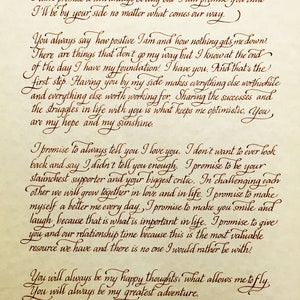 I'll be by your side no matter what comes our way.
You always say how positive I am and how nothing gets me down!
There are things that don't go my way but I know at the end
of the day I have my foundation! I have you. And that's the
first step. Having you by my side makes everything else worthwhile
and everything else worth working for. Sharing the successes and
the struggles in life with you is what keeps me optimistic. You
are my hope and my sunshine.
I promise to always tell you I love you. I don't want to ever look
back and say I didn't tell you enough. I promise to be your
staunchest supporter and your biggest critic. In challenging each
other we will grow together in love and in life. I promise to make
myself a better me every day. I promise to make you smile and
laugh because that is what is important in life. I promise to give
you and our relationship time because this is the most valuable
resource we have and there is no one I would rather be with!
You will always be my happy thoughts; what allows me to fly.
You will always be my greatest adventure.